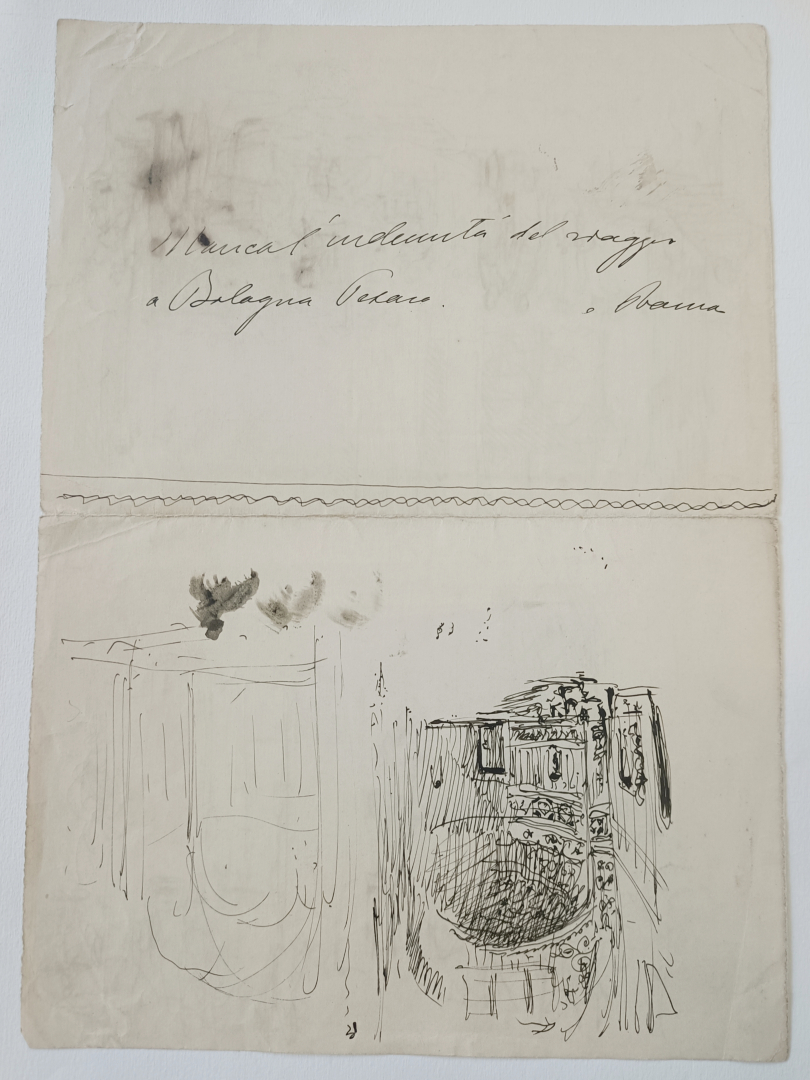 Manca l'indennità del viaggio
a Bologna Pesaro. e Roma